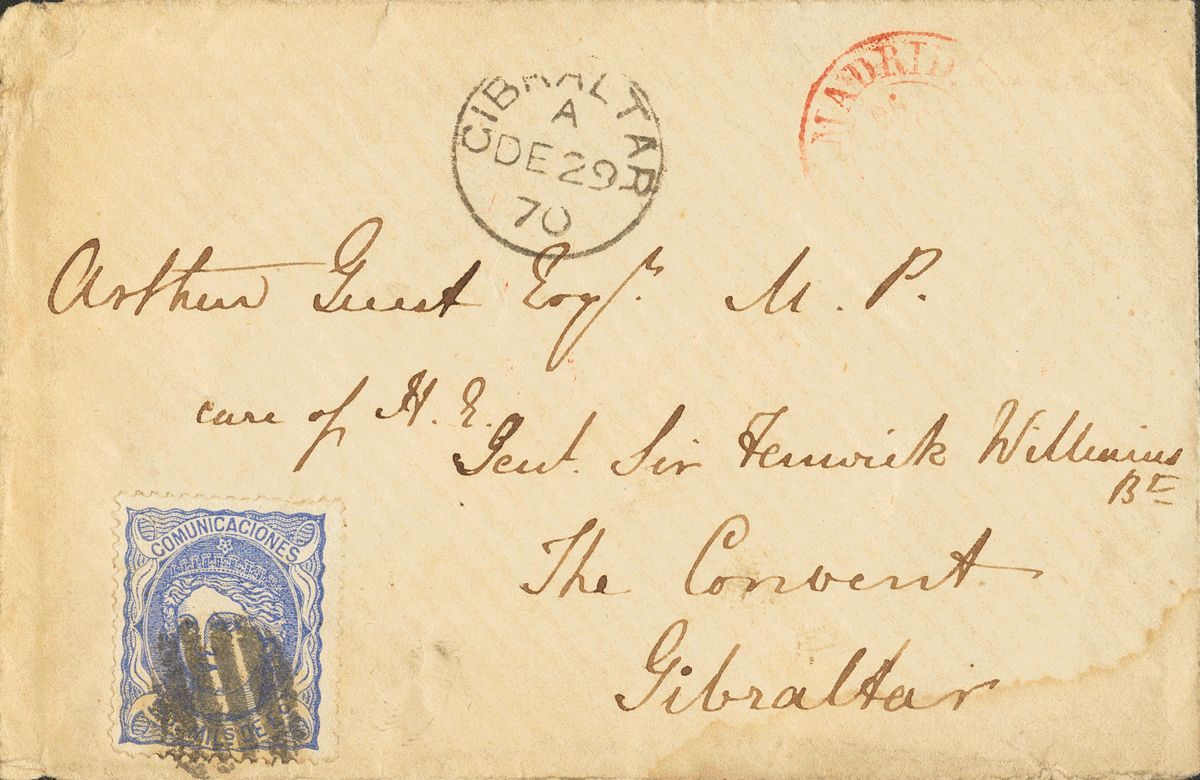 GIBRALTAR
A
DE 29
70
MADRID
Arthur Guest Esqr. M. P.
care of H. E.
Genl. Sir Fenwick Williams
Bt
The Convent
Gibraltar
COMUNICACIONES
MILS DE